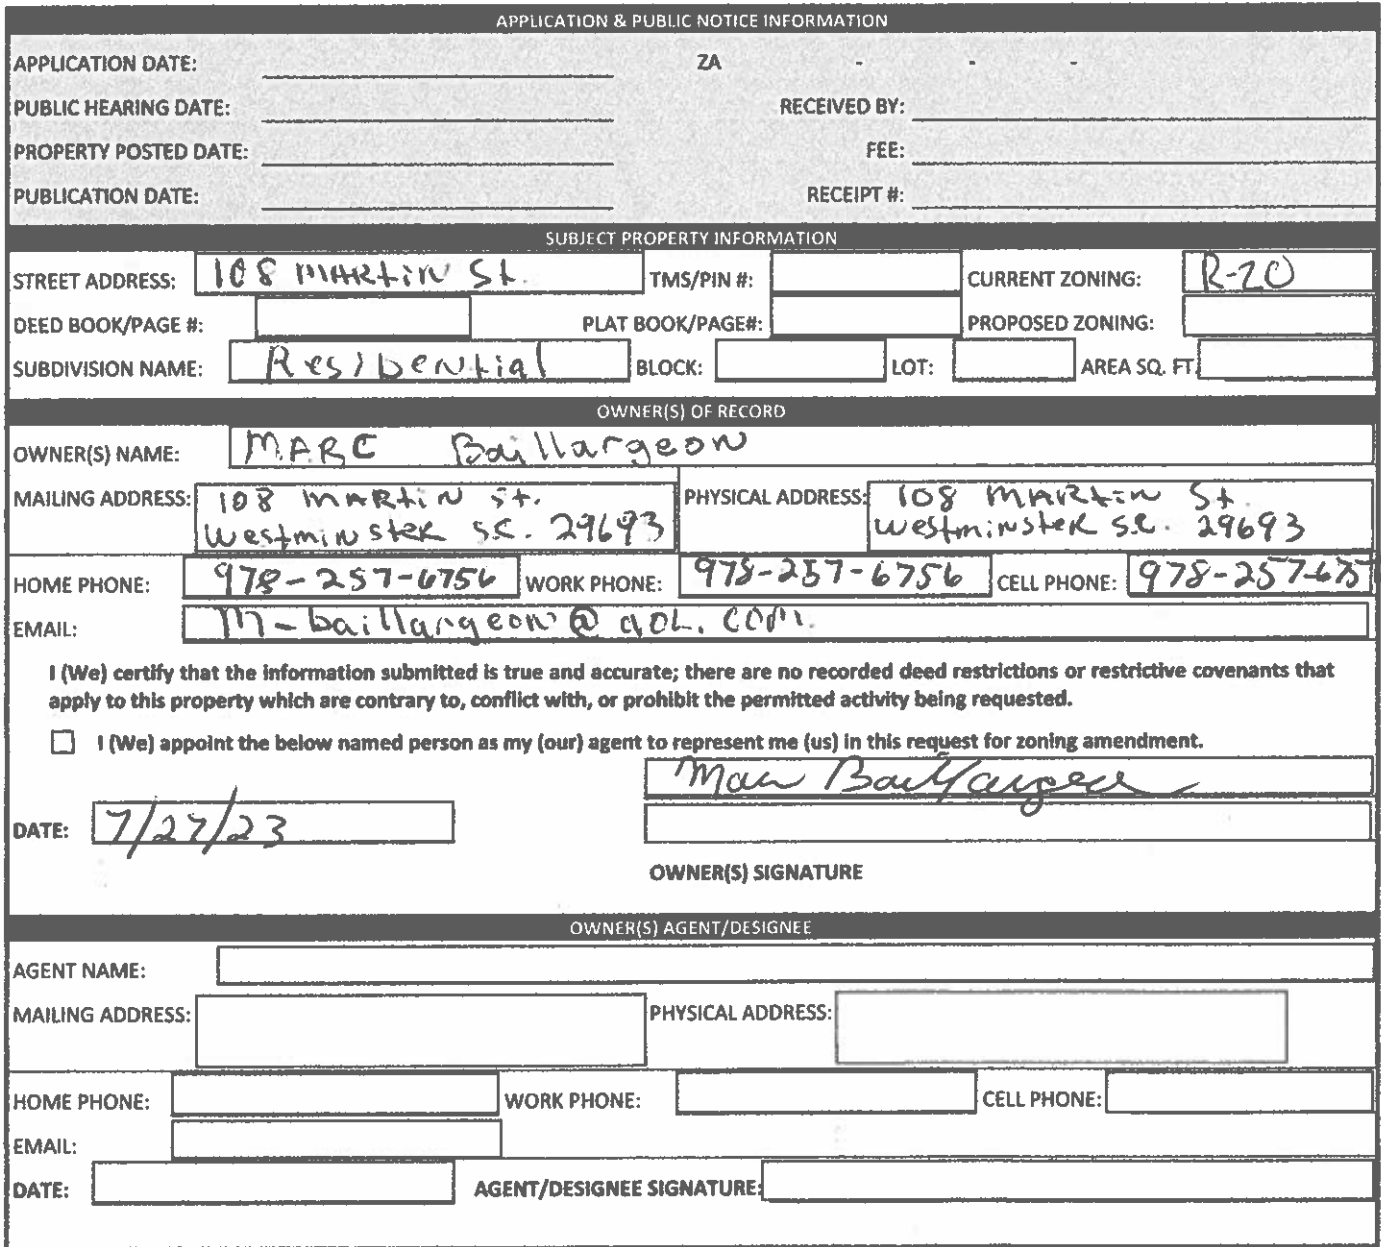 APPLICATION & PUBLIC NOTICE INFORMATION
APPLICATION DATE: ZA - - -
PUBLIC HEARING DATE: RECEIVED BY:
PROPERTY POSTED DATE: FEE:
PUBLICATION DATE: RECEIPT #:
SUBJECT PROPERTY INFORMATION
STREET ADDRESS: 108 MARtiN St. TMS/PIN #: CURRENT ZONING: R-20
DEED BOOK/PAGE #: PLAT BOOK/PAGE#: PROPOSED ZONING:
SUBDIVISION NAME: ResiDential BLOCK: LOT: AREA SQ. FT.
OWNER(S) OF RECORD
OWNER(S) NAME: MARC Baillargeon
MAILING ADDRESS: 108 MARtiN St. PHYSICAL ADDRESS: 108 MARtiN St
WestminsteR S.C. 29693 WestminsteR S.C. 29693
HOME PHONE: 978-257-6756 WORK PHONE: 978-257-6756 CELL PHONE: 978-257-675
EMAIL: M-baillargeon@aOL.COM.
I (We) certify that the information submitted is true and accurate; there are no recorded deed restrictions or restrictive covenants that
apply to this property which are contrary to, conflict with, or prohibit the permitted activity being requested.
I (We) appoint the below named person as my (our) agent to represent me (us) in this request for zoning amendment.
Marc Baillargeon
DATE: 7/27/23
OWNER(S) SIGNATURE
OWNER(S) AGENT/DESIGNEE
AGENT NAME:
MAILING ADDRESS: PHYSICAL ADDRESS:
HOME PHONE: WORK PHONE: CELL PHONE:
EMAIL:
DATE: AGENT/DESIGNEE SIGNATURE: